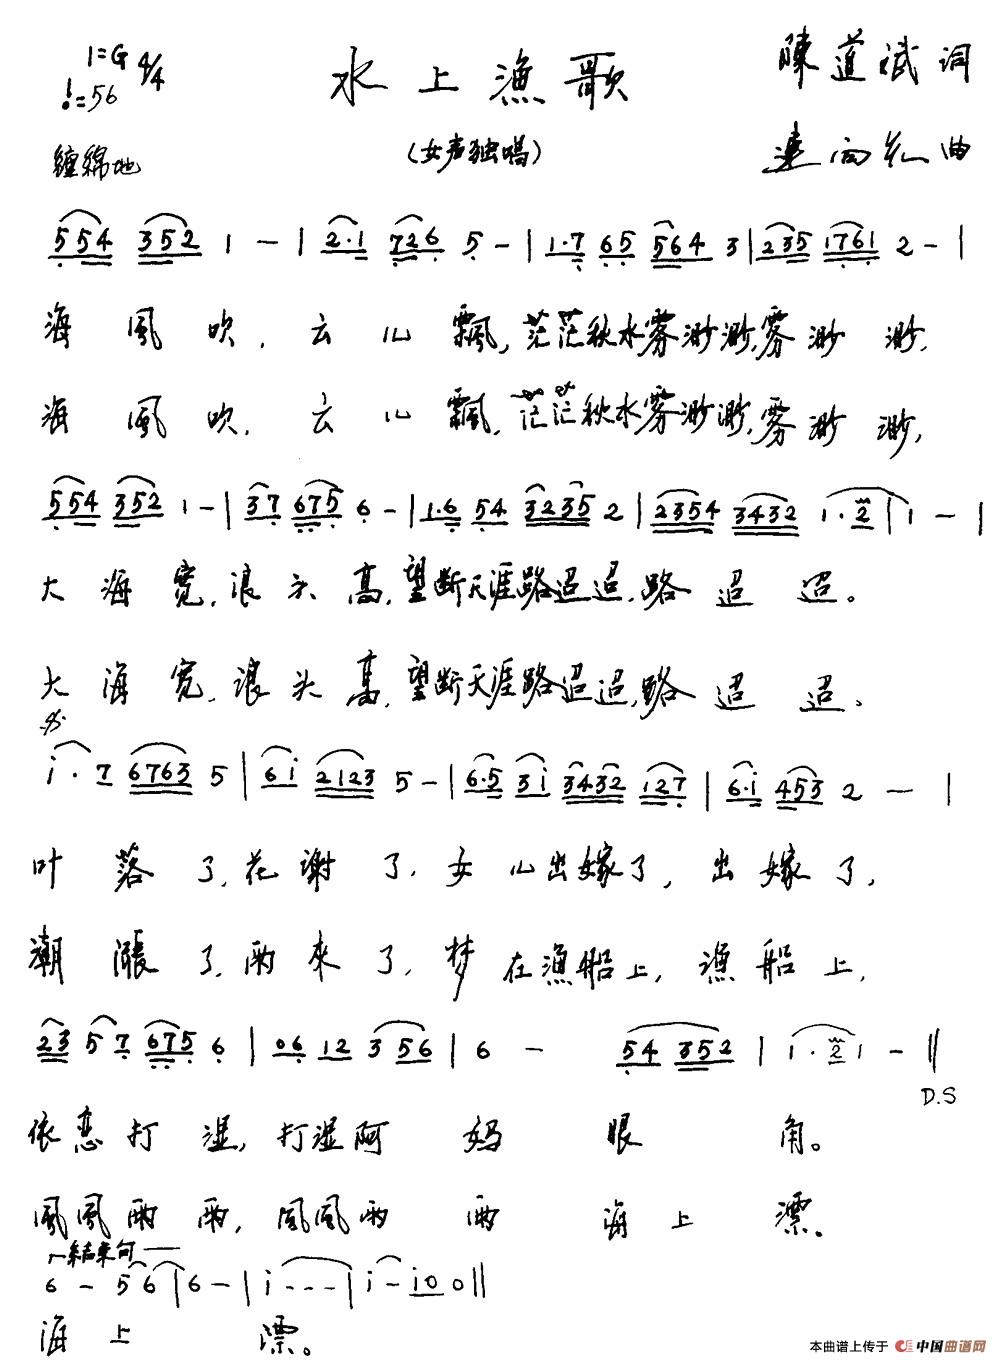 1=G 4/4
水上漁歌
陳道斌 词
♩=56
缠綿地
(女声独唱)
連向先 曲
5 5 4 3 5 2 1 — | 2·1 7 2 6 5 — | 1·7 6 5 5 6 4 3 | 2 3 5 1 7 6 1 2 — |
海風吹,云儿飄,茫茫秋水雾渺渺,雾渺渺,
海風吹,云儿飄,茫茫秋水雾渺渺,雾渺渺,
5 5 4 3 5 2 1 — | 3 7 6 7 5 6 — | 1·6 5 4 3 2 3 5 2 | 2 3 5 4 3 4 3 2 1·2 | 1 — |
大海宽,浪头高,望断天涯路迢迢,路迢迢。
大海宽,浪头高,望断天涯路迢迢,路迢迢。
i·7 6 7 6 3 5 | 6 i 2 1 2 3 5 — | 6·5 3 i 3 4 3 2 1 2 7 | 6·i 4 5 3 2 — |
叶落了,花謝了,女儿出嫁了,出嫁了,
潮漲了,雨來了,梦在漁船上,漁船上,
2 3 5 7 6 7 5 6 | 0 6 1 2 3 5 6 | 6 — 5 4 3 5 2 | 1·2 1 — ‖
D.S
依恋打湿,打湿阿妈眼角。
風風雨雨,風風雨雨海上漂。
結束句
6 — 5 6 | 6 — | i - - - | i — i 0 0 ‖
海上漂。
本曲谱上传于 中国曲谱网